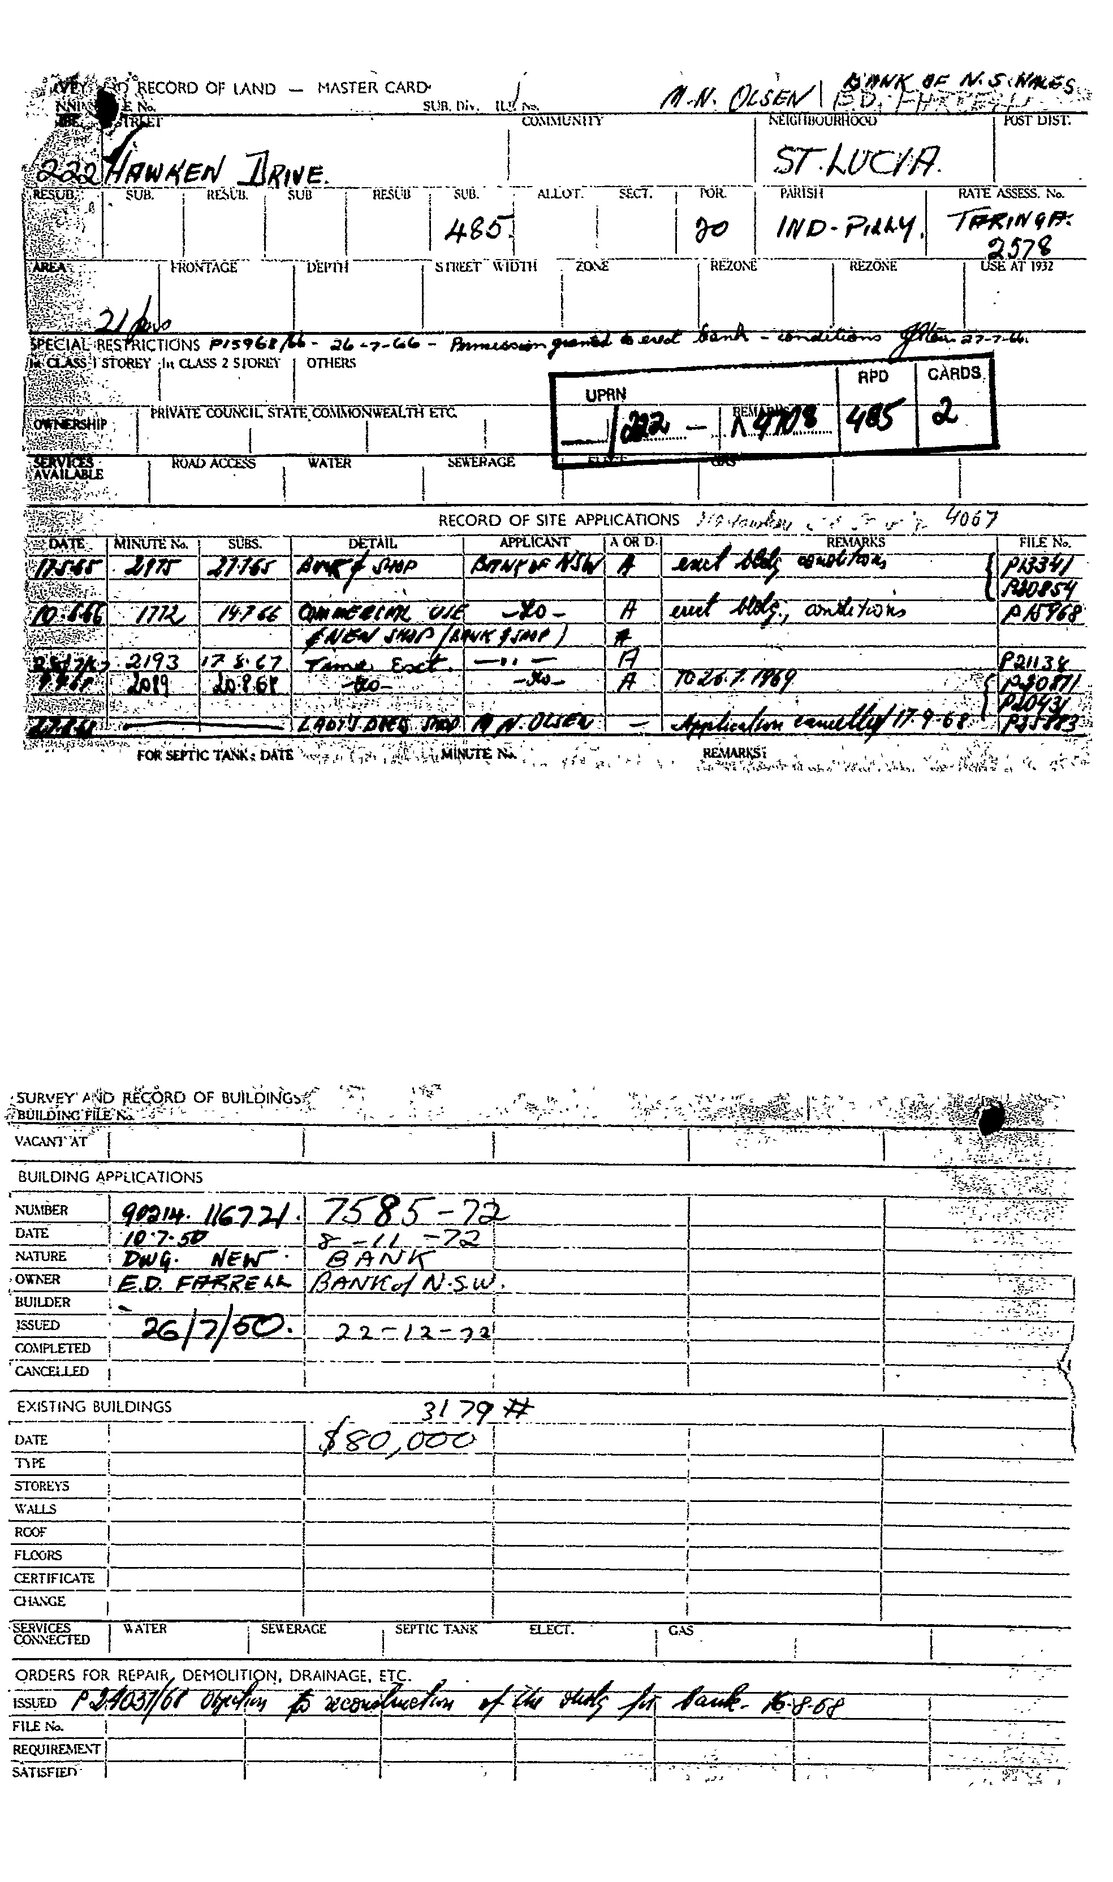 RECORD OF LAND — MASTER CARD
BANK OF N.S. WALES
E No. SUB. Div. No. M.N. OLSEN E.D. FARRELL
STREET COMMUNITY NEIGHBOURHOOD POST DIST.
222 HAWKEN DRIVE. ST. LUCIA.
RESUB. SUB. RESUB. SUB RESUB SUB. ALLOT. SECT. POR. PARISH RATE ASSESS. No.
485. 20 IND-PILLY. TARINGA.
2578
AREA FRONTAGE DEPTH STREET WIDTH ZONE REZONE REZONE USE AT 1932
21
SPECIAL RESTRICTIONS P15968/66 - 26-7-66 - Permission granted to erect bank - conditions 27-7-66.
In CLASS 1 STOREY In CLASS 2 STOREY OTHERS
UPRN RPD CARDS
OWNERSHIP PRIVATE COUNCIL STATE COMMONWEALTH ETC. REMARKS
222 — A 4708 485 2
SERVICES AVAILABLE ROAD ACCESS WATER SEWERAGE ELECT. GAS
RECORD OF SITE APPLICATIONS 4067
DATE MINUTE No. SUBS. DETAIL APPLICANT A OR D. REMARKS FILE No.
17.5.65 2975 27.7.65 BANK & SHOP BANK OF NSW A erect bldg conditions P13341
P20854
10.6.66 1772 14.7.66 COMMERCIAL USE -do- A erect bldg., conditions P15968
& NEW SHOP (BANK & SHOP) A
2193 17.8.67 Time Ext. —"— A P21134
2089 20.8.68 -do- -do- A TO 26.7.1969 P20871
P20431
27.8.68 LADY'S DRESS SHOP M N. OLSEN — Application cancelled 17-9-68 P25883
FOR SEPTIC TANK: DATE MINUTE No. REMARKS:
SURVEY AND RECORD OF BUILDINGS
BUILDING FILE No.
VACANT AT
BUILDING APPLICATIONS
NUMBER 90214. 116721. 7585-72
DATE 10.7.50 8-11-72
NATURE DWG. NEW. BANK
OWNER E.D. FARRELL BANK of N.S.W.
BUILDER
ISSUED 26/7/50. 22-12-72
COMPLETED
CANCELLED
EXISTING BUILDINGS 3179 #
DATE $80,000
TYPE
STOREYS
WALLS
ROOF
FLOORS
CERTIFICATE
CHANGE
SERVICES CONNECTED WATER SEWERAGE SEPTIC TANK ELECT. GAS
ORDERS FOR REPAIR, DEMOLITION, DRAINAGE, ETC.
ISSUED P24037/68 Objection to reconstruction of the bldg for bank. 16-8-68
FILE No.
REQUIREMENT
SATISFIED